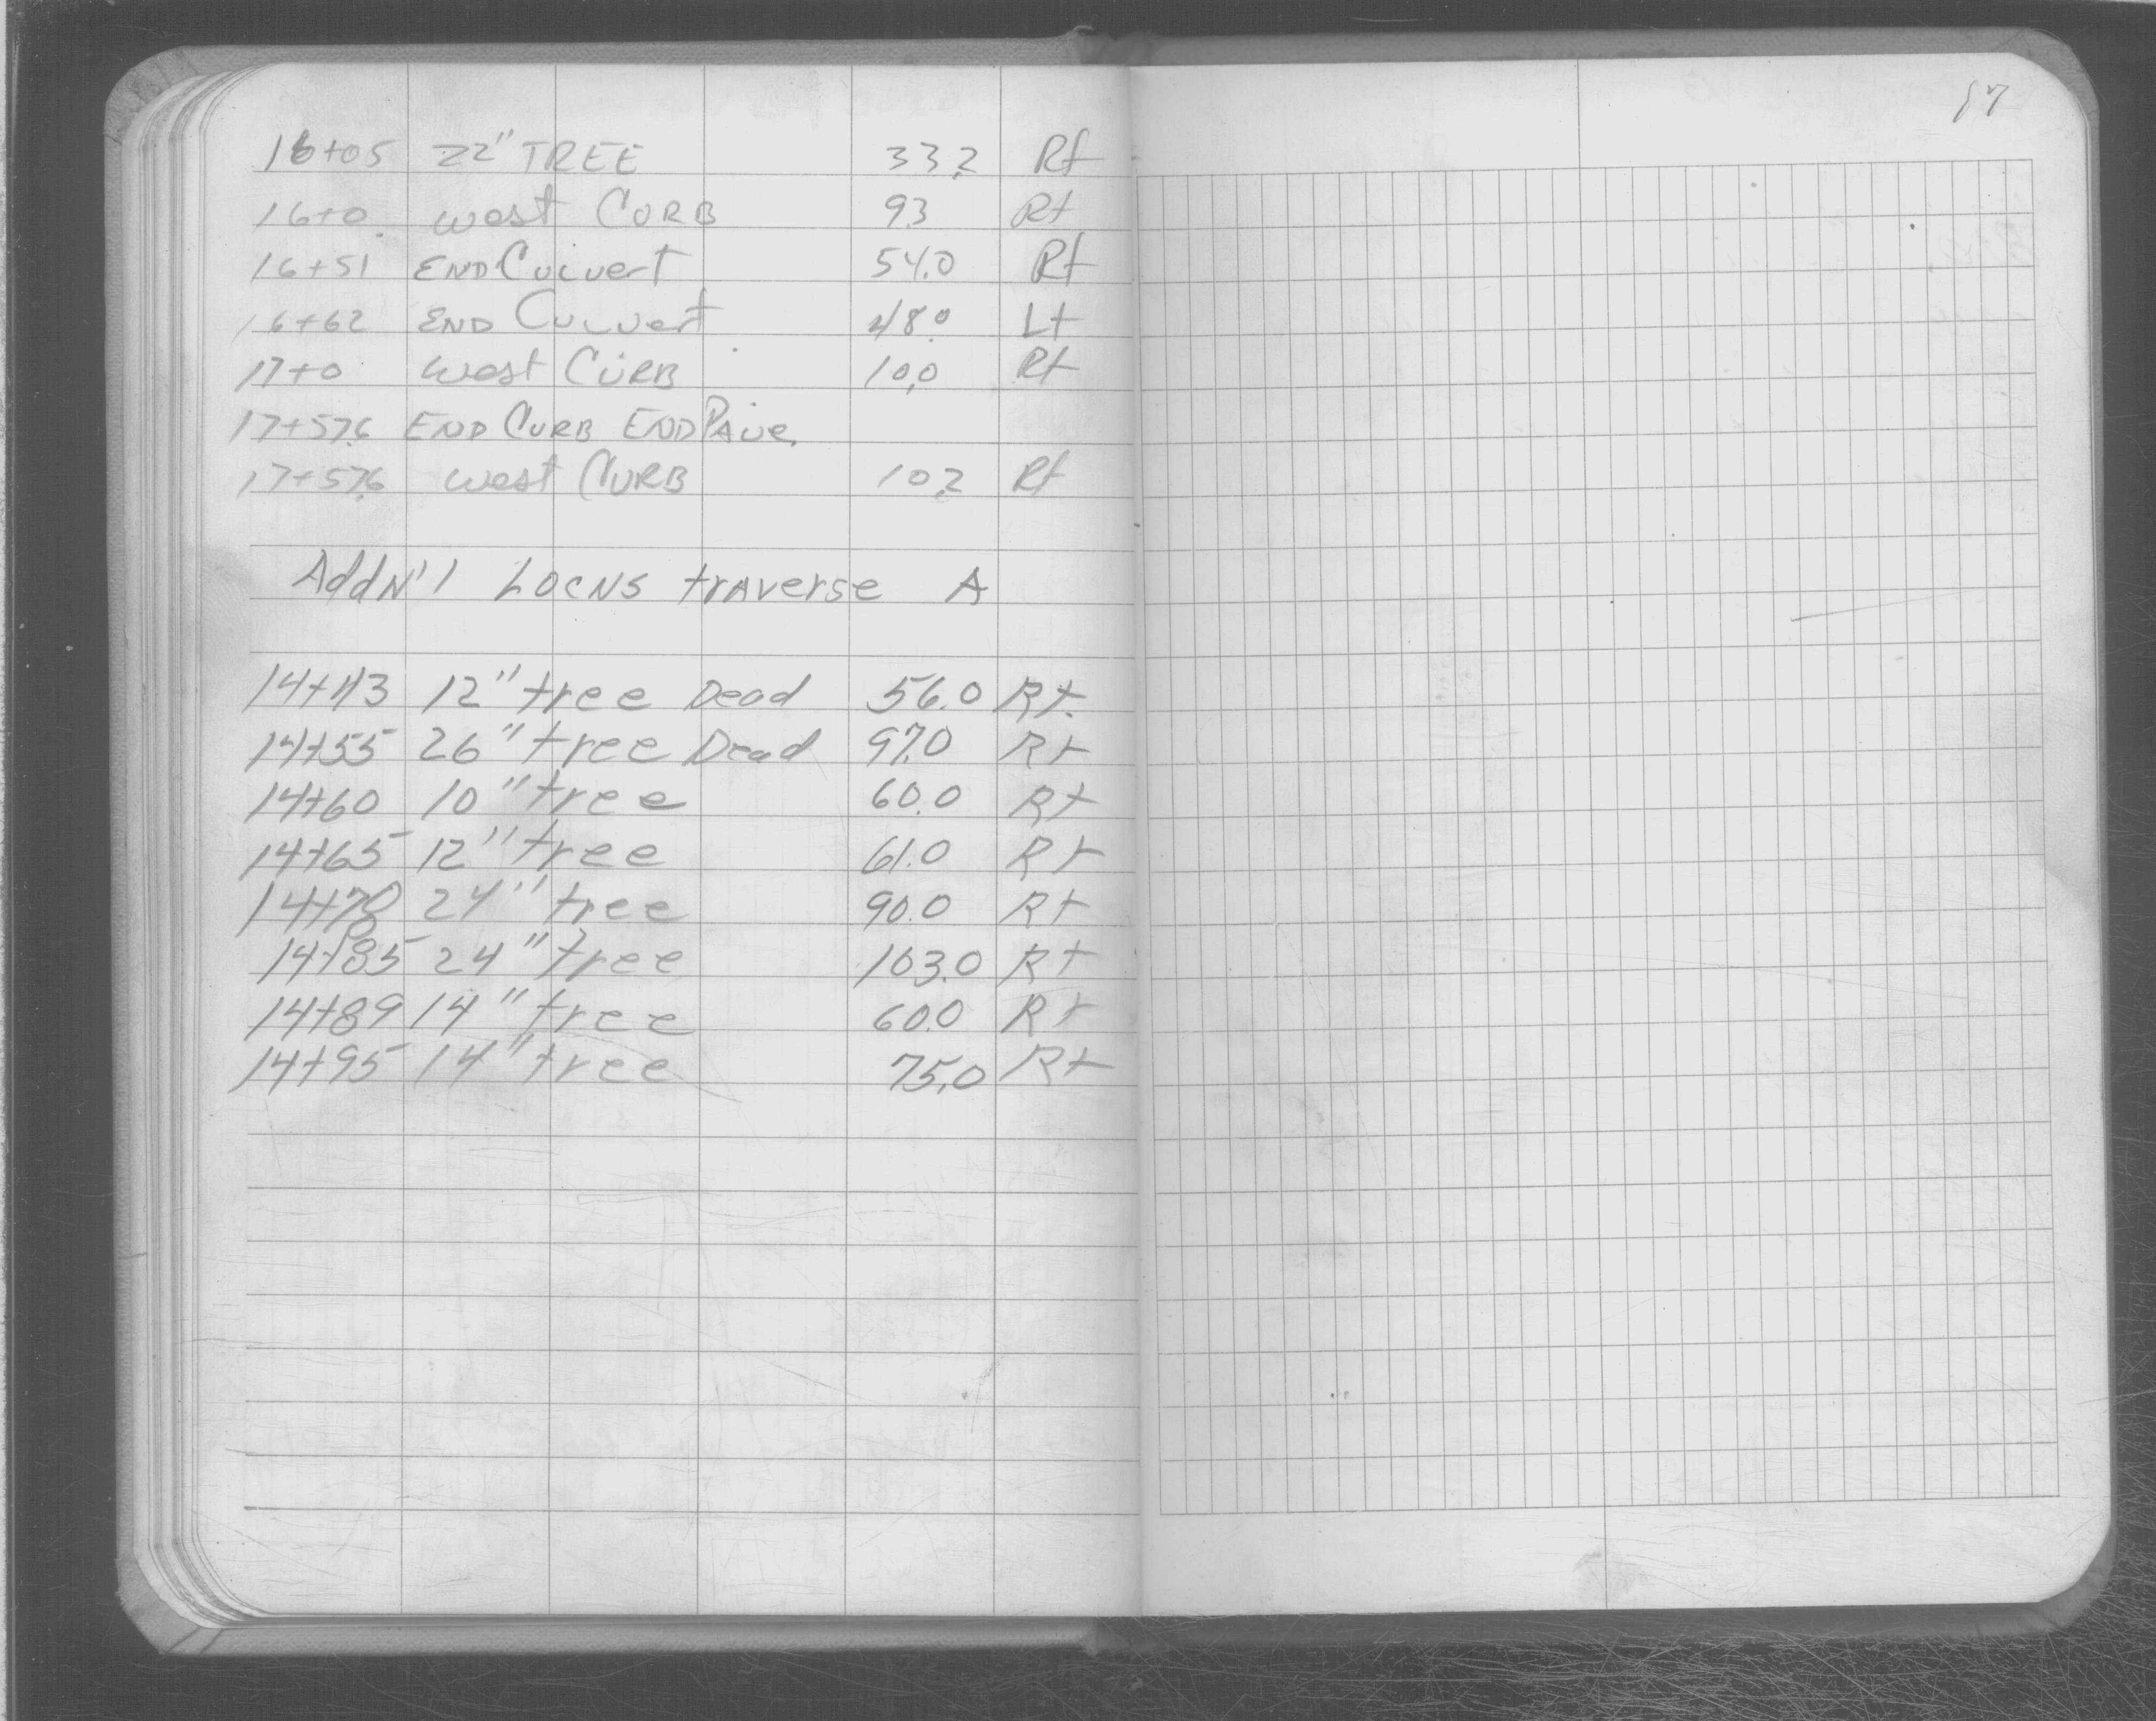 17
16+05 22" TREE 33.2 Rt
16+0 west CURB 9.3 Rt
16+51 END Culvert 54.0 Rt
16+62 END Culvert 48.0 Lt
17+0 west CURB 10.0 Rt
17+57.6 END CURB END PAVE.
17+57.6 west CURB 10.2 Rt
AddN'l LOCNS trAverse A
14+43 12" tree Dead 56.0 Rt.
14+55 26" tree Dead 97.0 Rt
14+60 10" tree 60.0 Rt
14+65 12" tree 61.0 Rt
24" tree 90.0 Rt
14+85 24" tree 103.0 Rt
14+89 14" tree 60.0 Rt
14+95 14" tree 75.0 Rt